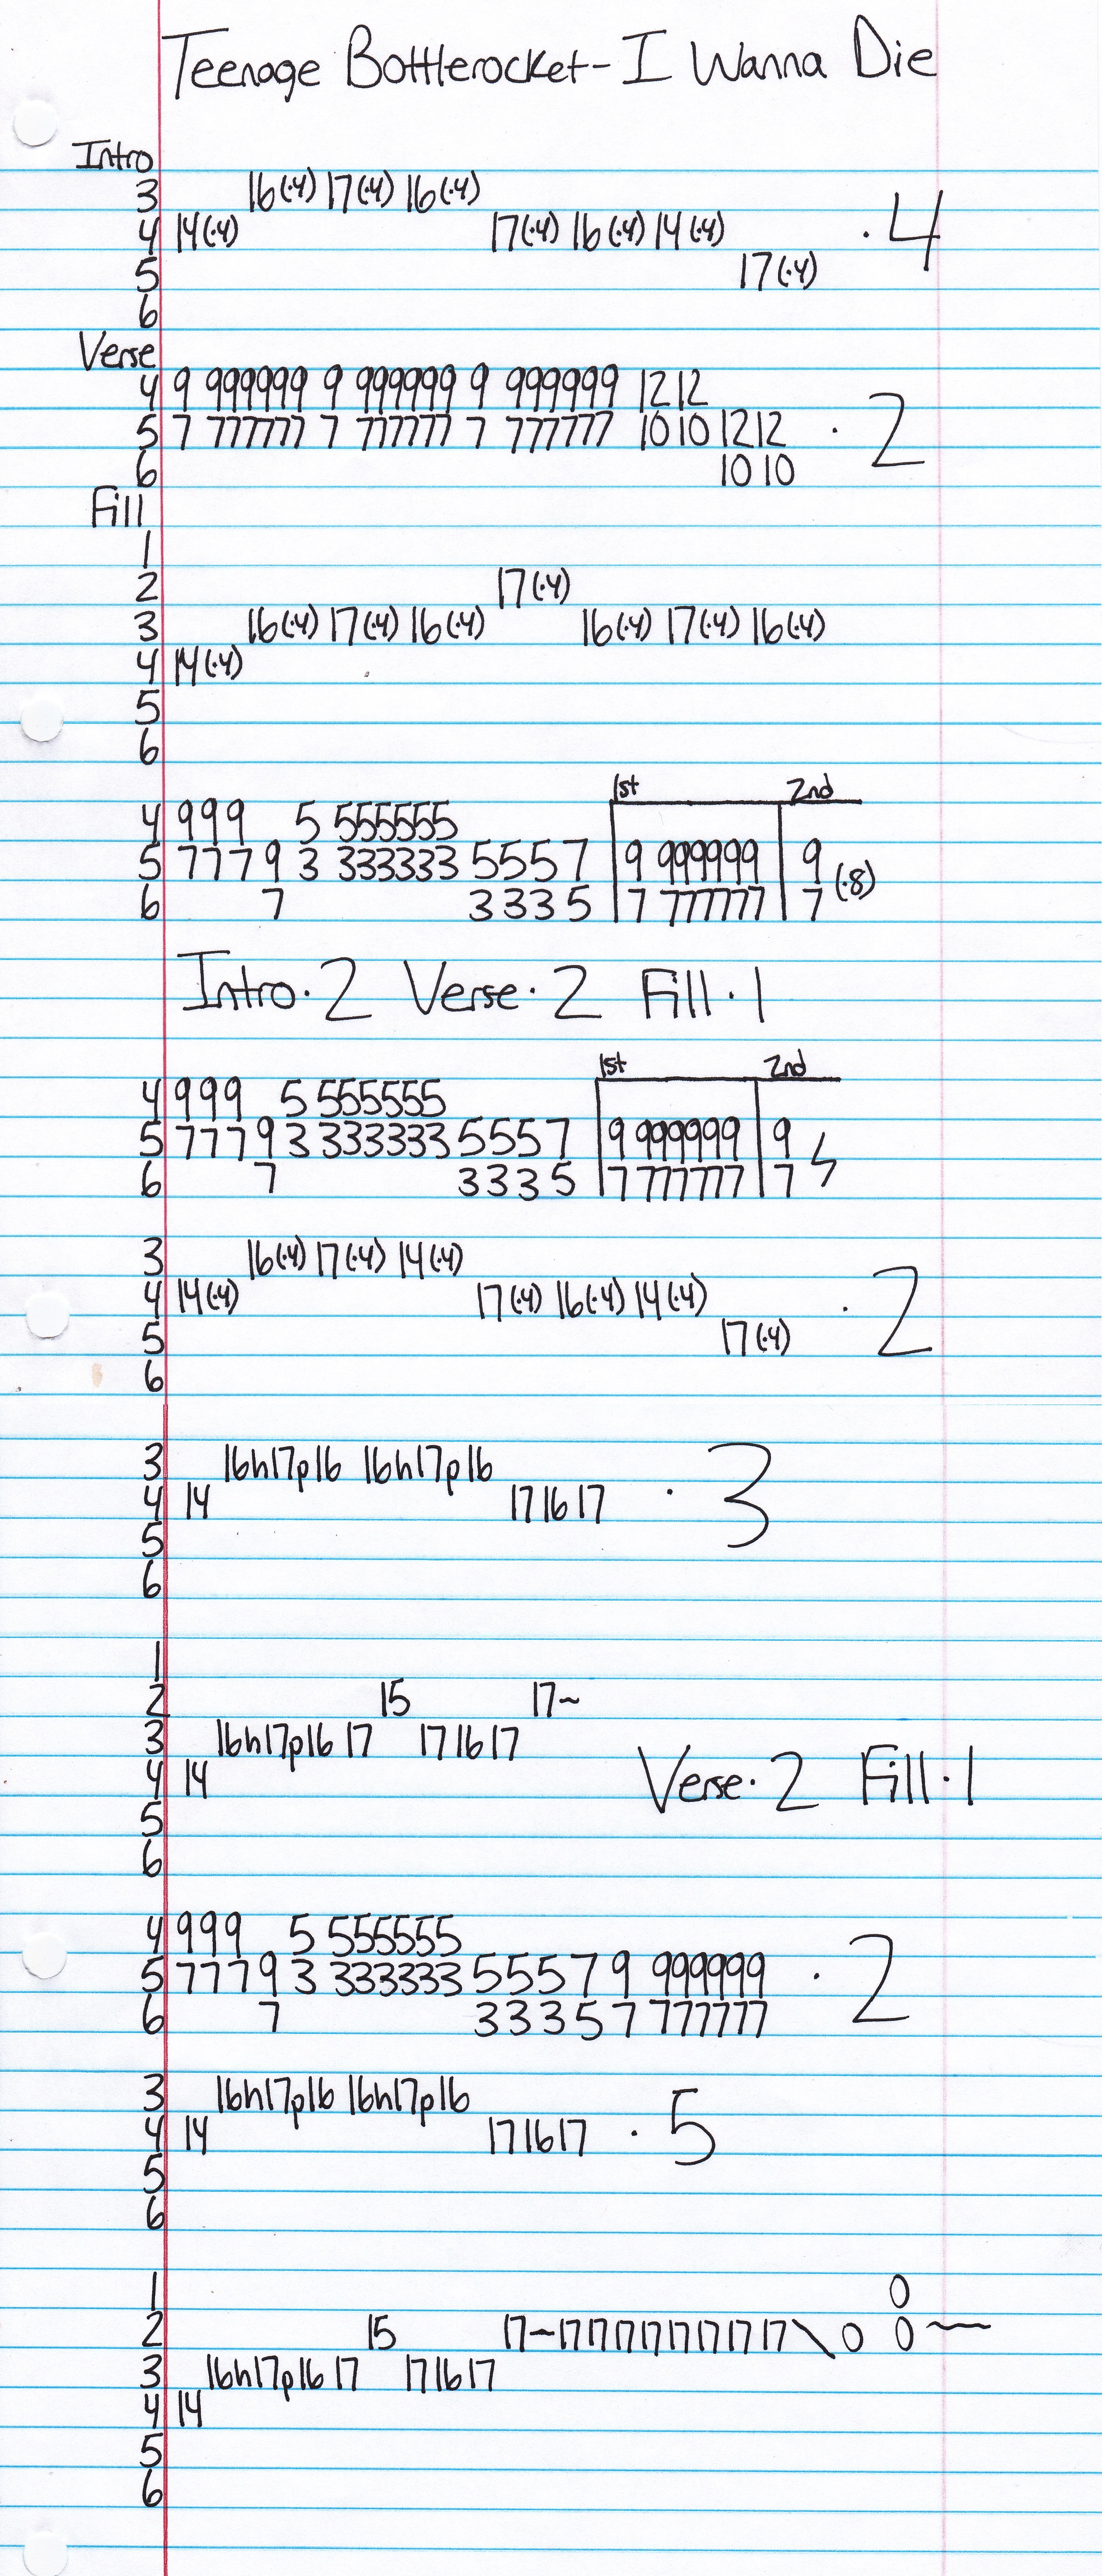 Teenage Bottlerocket - I Wanna Die
Intro
3 16(·4) 17(·4) 16(·4)
4 14(·4) 17(·4) 16(·4) 14(·4) · 4
5 17(·4)
6
Verse
4 9 999999 9 999999 9 999999 12 12
5 7 777777 7 777777 7 777777 10 10 12 12 · 2
6 10 10
Fill
1
2 17(·4)
3 16(·4) 17(·4) 16(·4) 16(·4) 17(·4) 16(·4)
4 14(·4)
5
6
1st 2nd
4 9 9 9 5 555555
5 7 7 7 9 3 333333 5 5 5 7 9 999999 9 (·8)
6 7 3 3 3 5 7 777777 7
Intro · 2 Verse · 2 Fill · 1
1st 2nd
4 9 9 9 5 555555
5 7 7 7 9 3 333333 5 5 5 7 9 999999 9
6 7 3 3 3 5 7 777777 7
3 16(·4) 17(·4) 14(·4)
4 14(·4) 17(·4) 16(·4) 14(·4) · 2
5 17(·4)
6
3 16h17p16 16h17p16
4 14 17 16 17 · 3
5
6
1
2 15 17~
3 16h17p16 17 17 16 17
4 14
Verse · 2 Fill · 1
5
6
4 9 9 9 5 555555
5 7 7 7 9 3 333333 5 5 5 7 9 999999 · 2
6 7 3 3 3 5 7 777777
3 16h17p16 16h17p16
4 14 17 16 17 · 5
5
6
1 0
2 15 17~17 17 17 17 17 17 17 17\ 0 0~
3 16h17p16 17 17 16 17
4 14
5
6